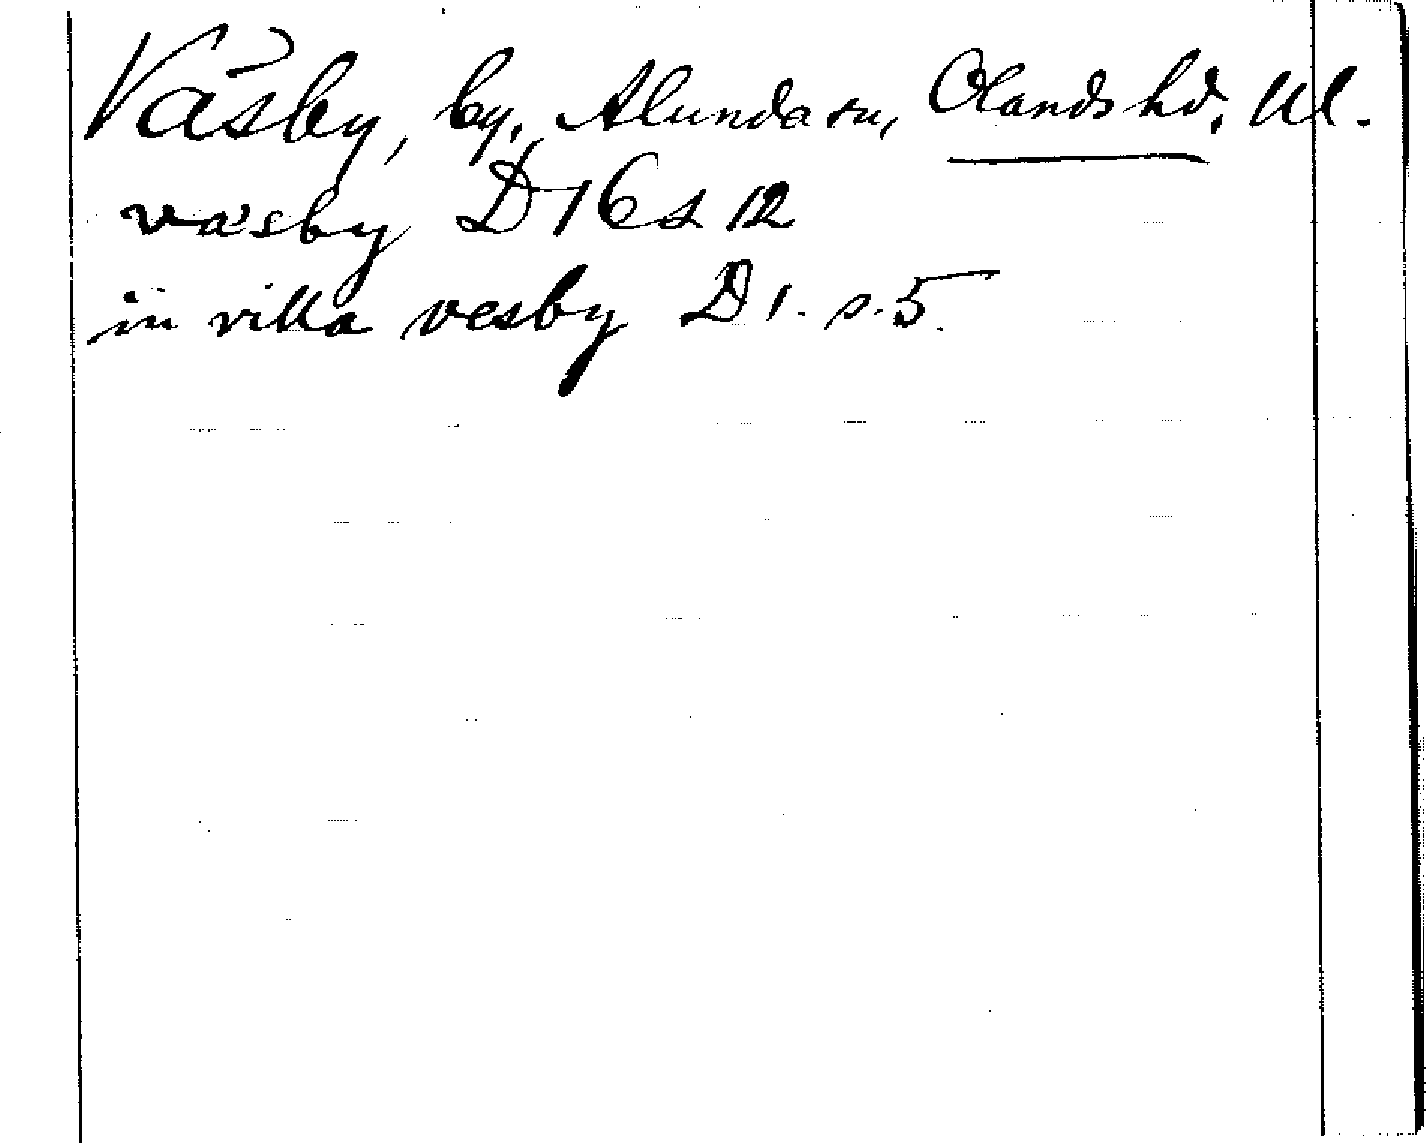 Väsby, by, Alunda sn, Olands hd, Ul.
väsby D 16 s 12
in villa vesby D 1. s. 5.